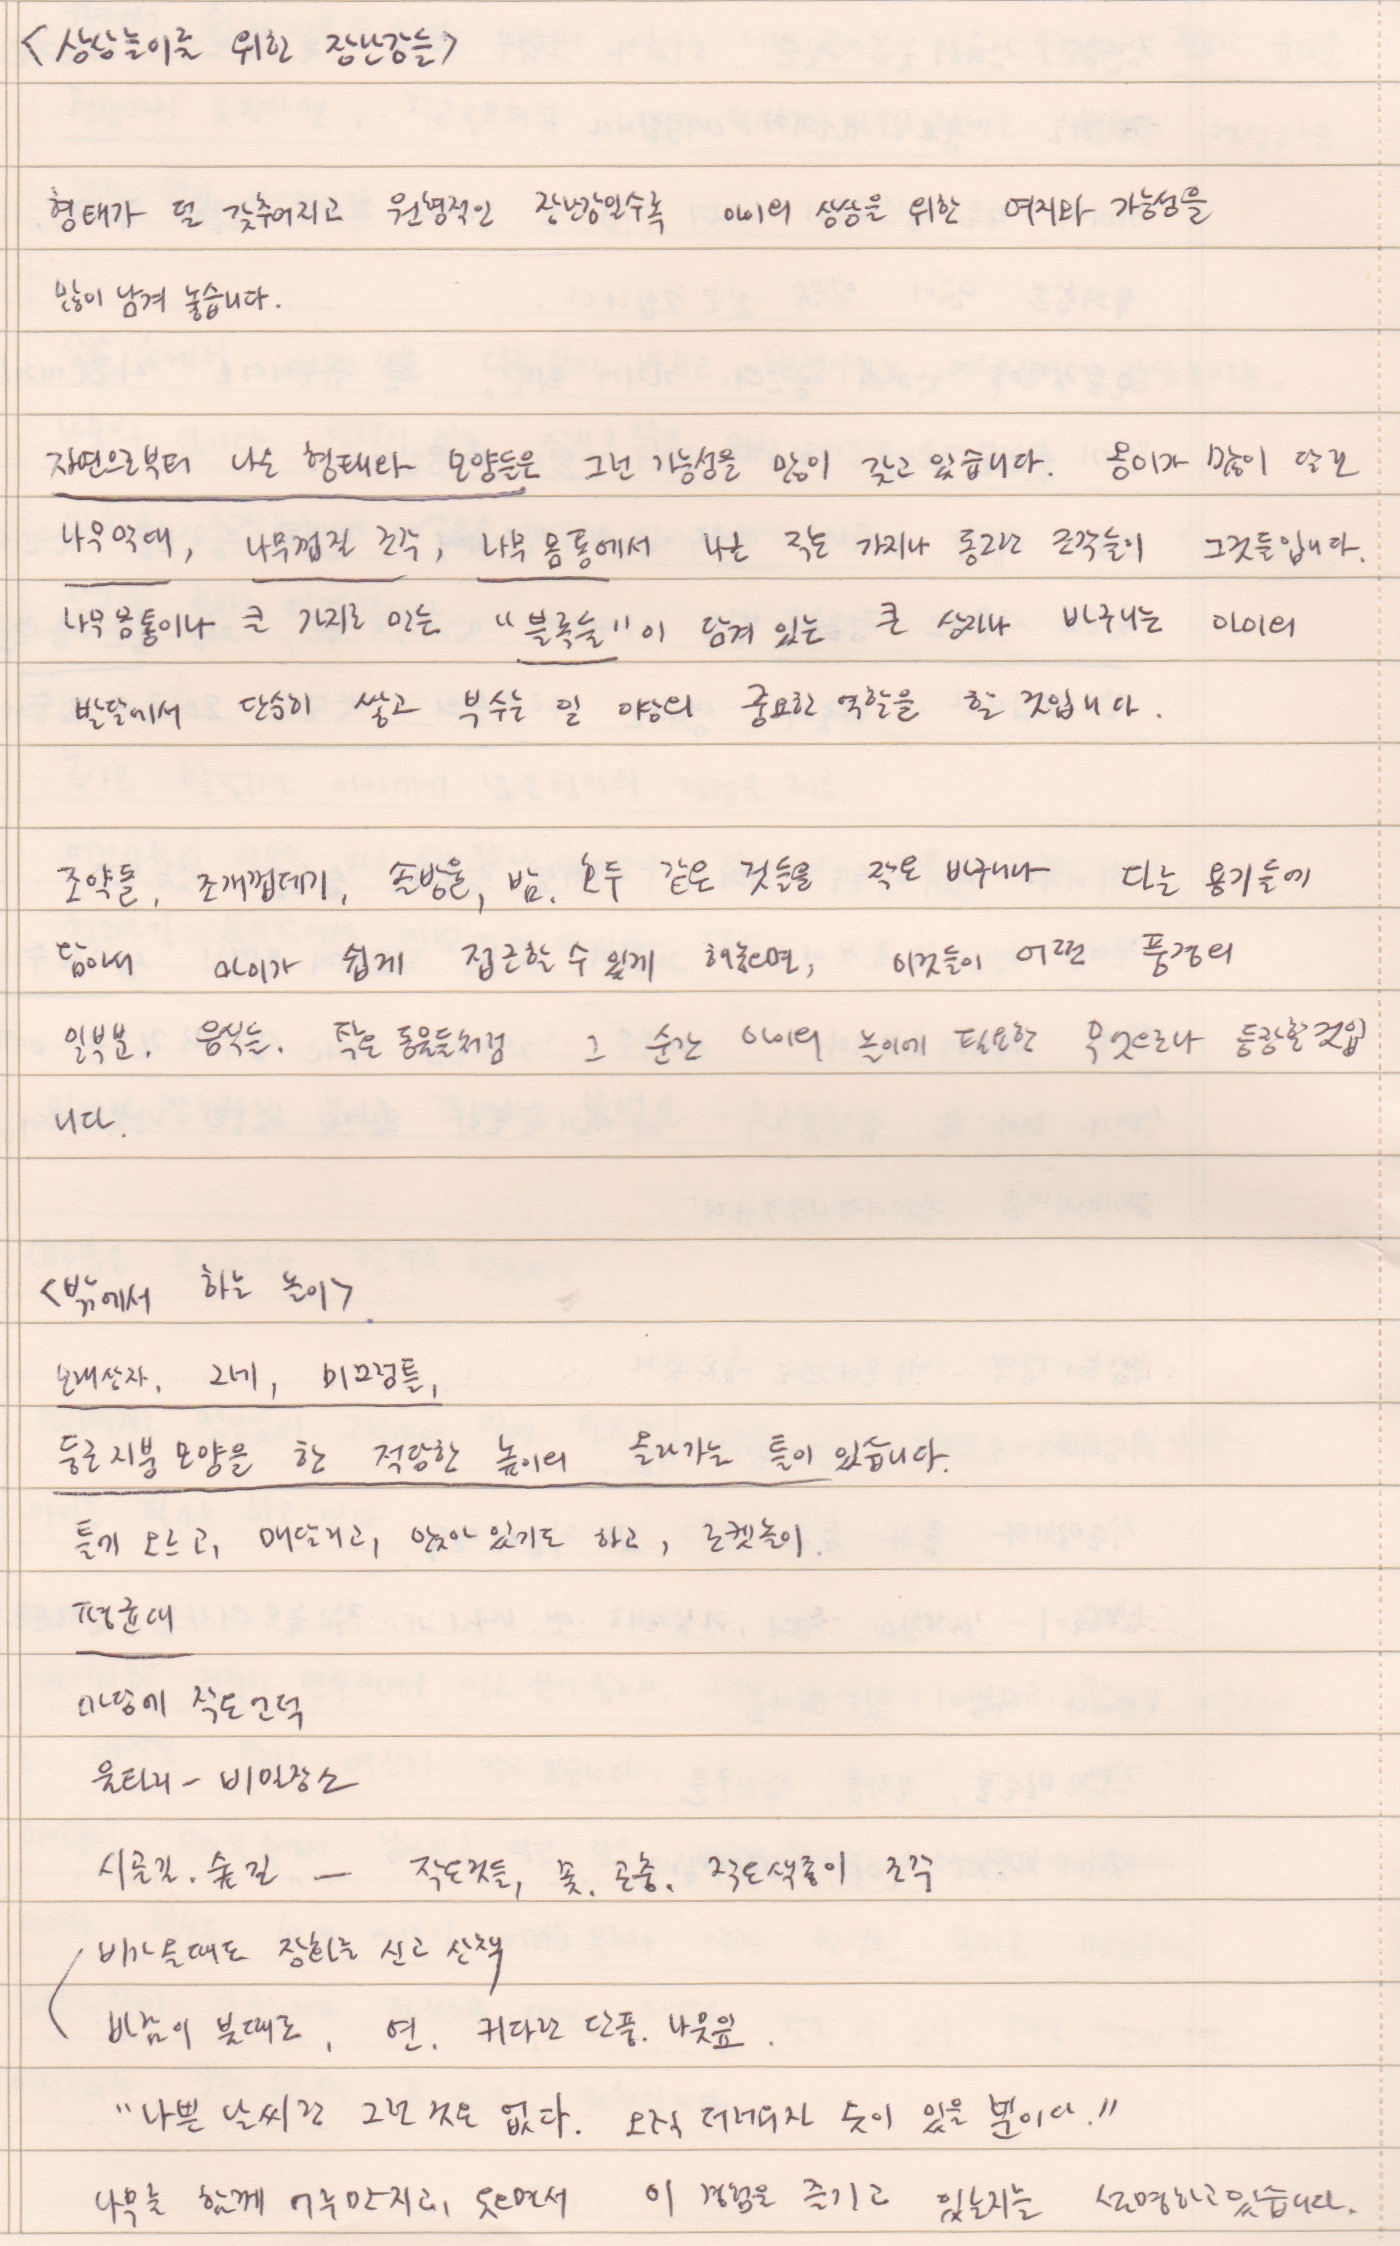 <상상놀이를 위한 장난감들>
형태가 덜 갖추어지고 원형적인 장난감일수록 아이의 상상을 위한 여지와 가능성을
많이 남겨 놓습니다.
자연으로부터 나온 형태와 모양들은 그런 가능성을 많이 갖고 있습니다. 옹이가 많이 달린
나무막대, 나무껍질 조각, 나무 몸통에서 나온 작은 가지나 동그란 조각들이 그것들입니다.
나무몸통이나 큰 가지로 만든 "블록들"이 담겨 있는 큰 상자나 바구니는 아이의
발달에서 단순히 쌓고 부수는 일 이상의 중요한 역할을 할 것입니다.
조약돌, 조개껍데기, 솔방울, 밤, 호두 같은 것들을 작은 바구니나 다른 용기들에
담아서 아이가 쉽게 접근할 수 있게 해놓으면, 이것들이 어떤 풍경의
일부분, 음식들, 작은 동물들처럼 그 순간 아이의 놀이에 필요한 무엇으로나 등장할것입
니다.
<밖에서 하는 놀이>
모래상자, 그네, 미끄럼틀,
둥근지붕모양을 한 적당한 높이의 올라가는 틀이 있습니다.
틀에 오르고, 매달리고, 앉아 있기도 하고, 로켓놀이.
평균대
마당에 작은언덕
울타리 - 비밀장소
시골길, 숲길 - 작은것들, 꽃, 곤충, 작은색종이 조각
비가 올때도 장화를 신고 산책
바람이 불때도, 연, 커다란 단풍, 나뭇잎.
"나쁜 날씨란 그런 것은 없다. 오직 옷이 있을 뿐이다."
나무를 함께 어루만지고, 웃으면서 이 경험을 즐기고 있는지를 설명하고 있습니다.